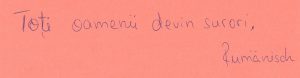 Toți oamenii devin surori,
Rumänisch